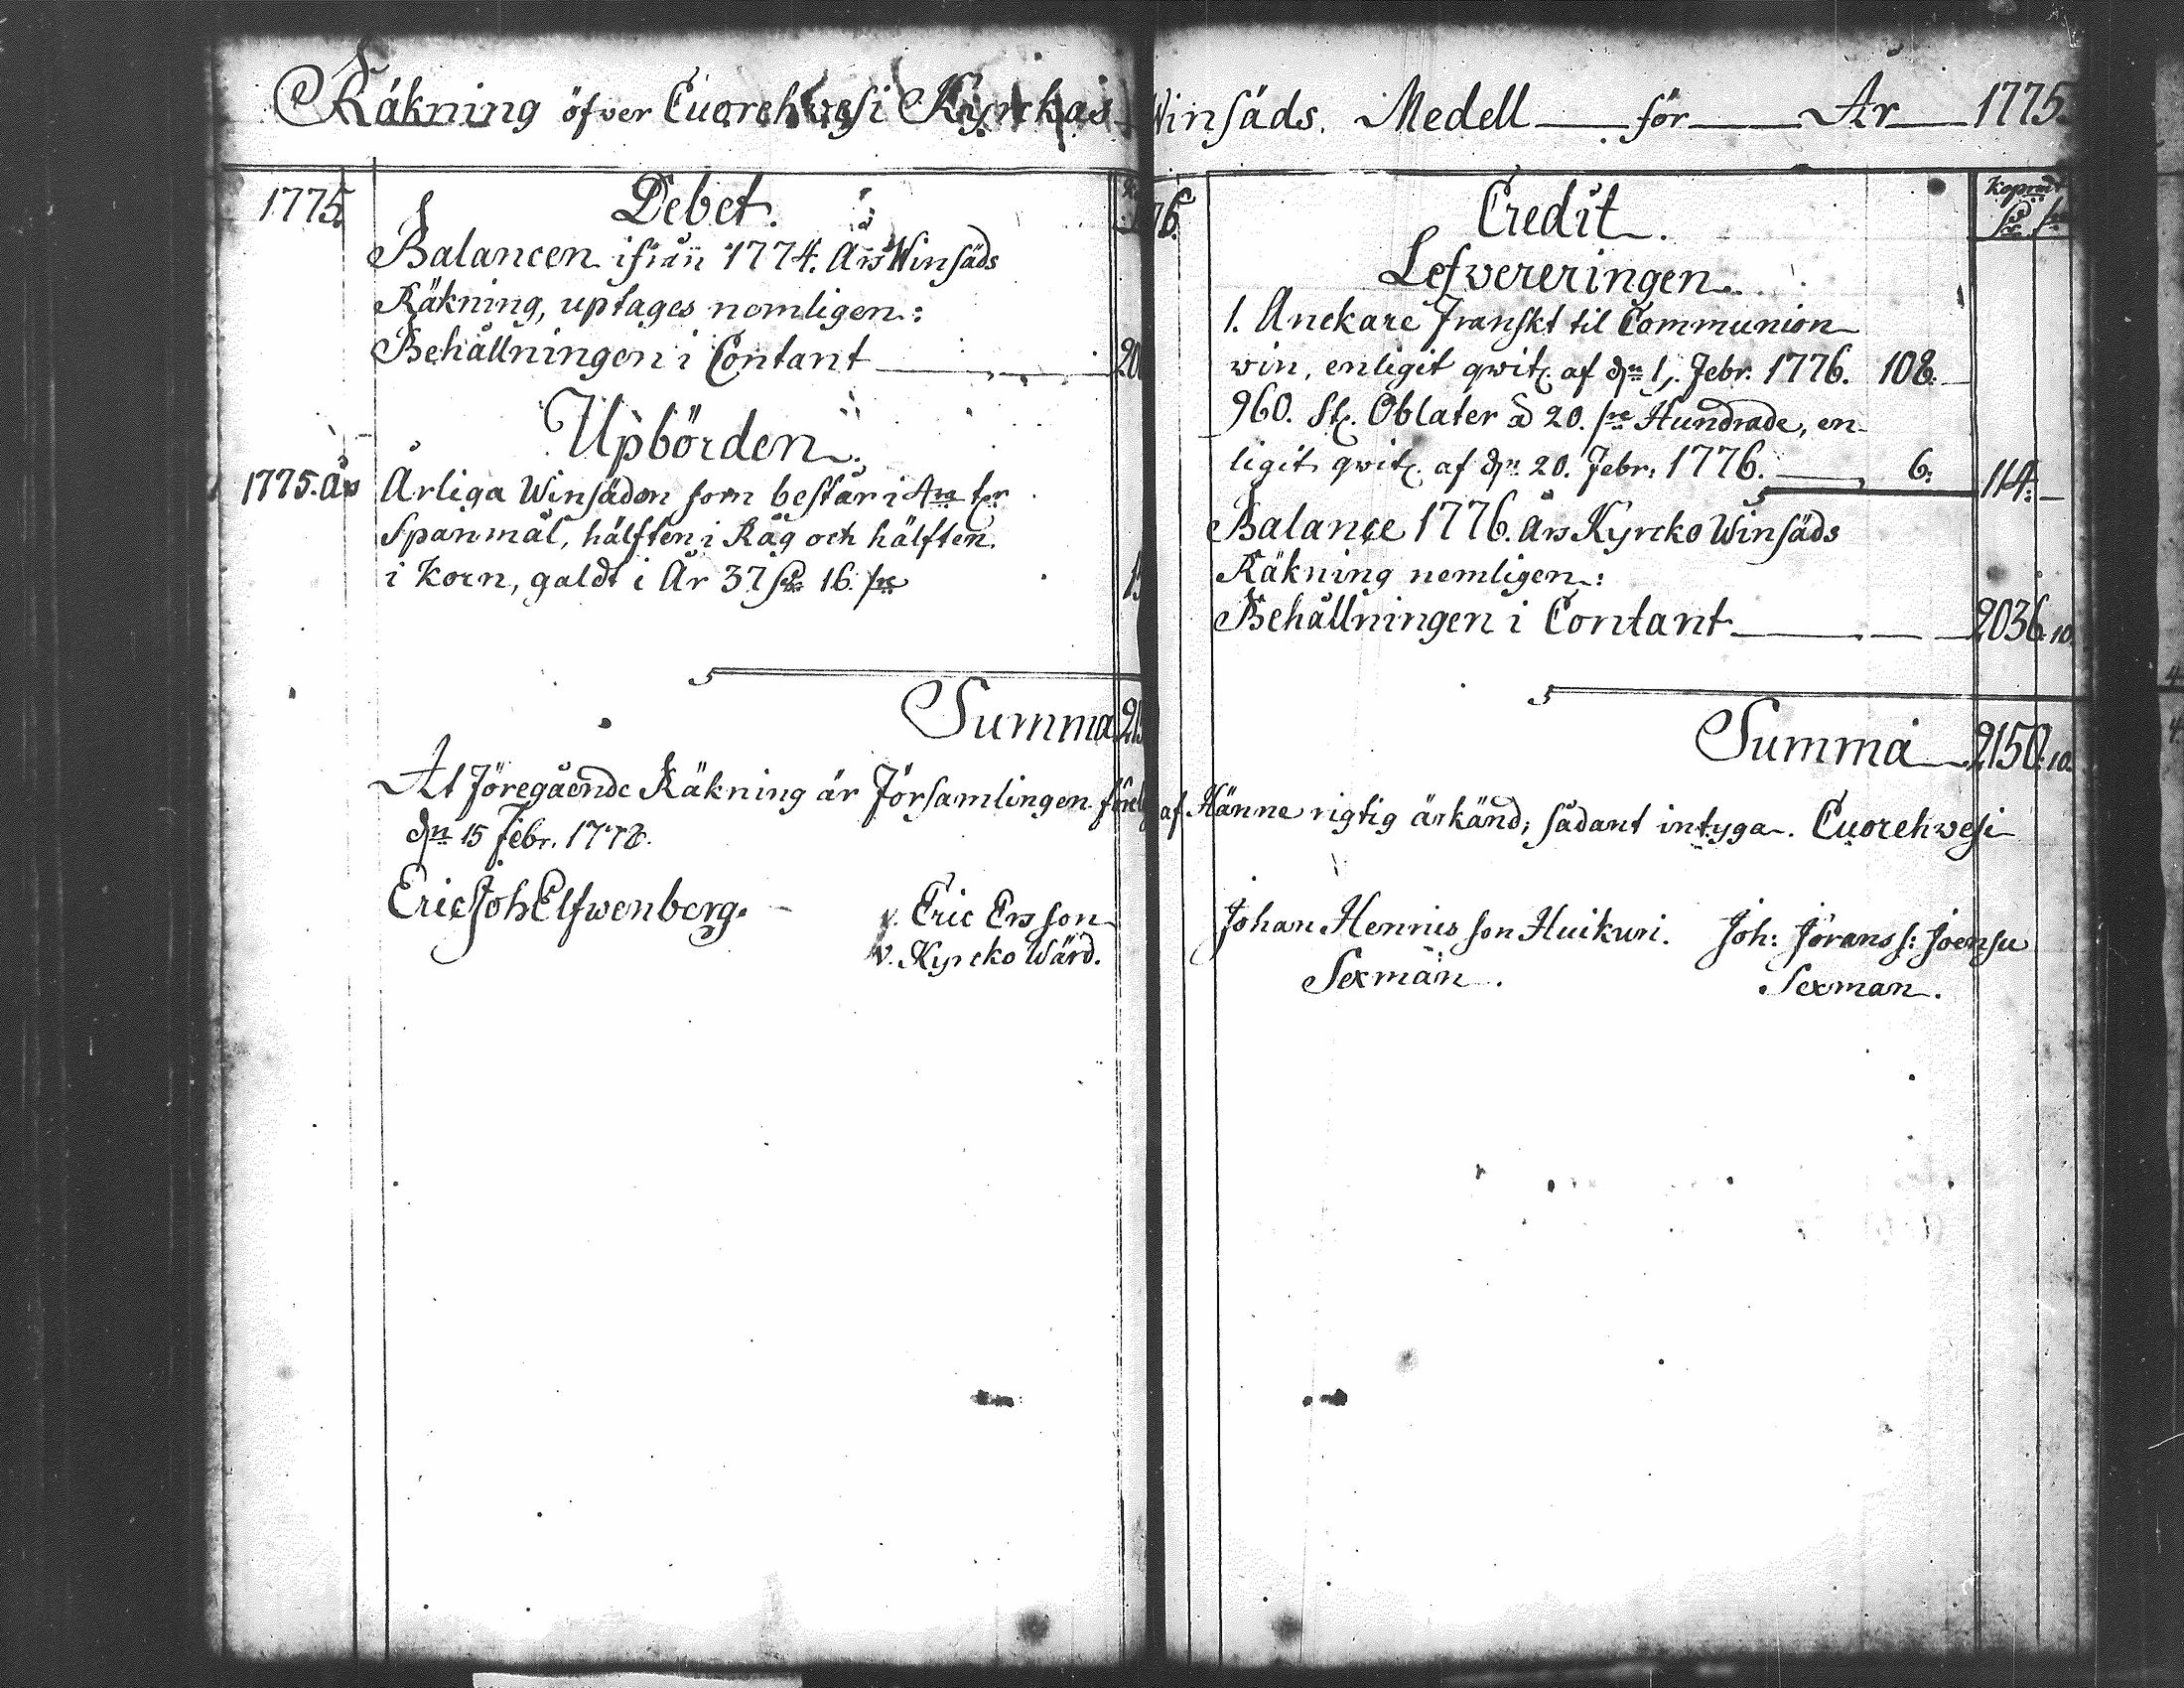 Räkning öfver Cuorehwesi Kyrckas Winsäds Medell för År 1775.
1775.
Debet.
Balancen ifrån 1774. Års Winsäds
Räkning, uptages nemligen:
Behållningen i Contant 20
Upbörden.
1775. Års Årliga Winsäden som består i 4ra t:r
Spanmål, hälften i Råg och hälften
i Korn, galdt i År 37 16.
Summa 21
At Föregående Räkning är Församlingen
dn 15 Febr. 1778.
Eric Joh Elfwenberg.
v. Eric Ersson
v. Kyrcko Wärd.
76.
Credit.
Lefvereringen.
1. Anckare Franskt til Communion
win, enligit qwit: af dn 1. Febr. 1776. 108.
960. St. Oblater a 20. Hundrade, en
ligit qwit: af dn 20. Febr. 1776. 6. 114.
Balance 1776. Års Kyrcko Winsäds
Räkning nemligen:
Behållningen i Contant 2036. 10.
Summa 2150. 10.
af Hänne rigtig ärkänd, sådant intyga. Cuorehwesi
Johan Henricsson Huikuri. Joh: Jöranss: Joensu
Sexman. Sexman.